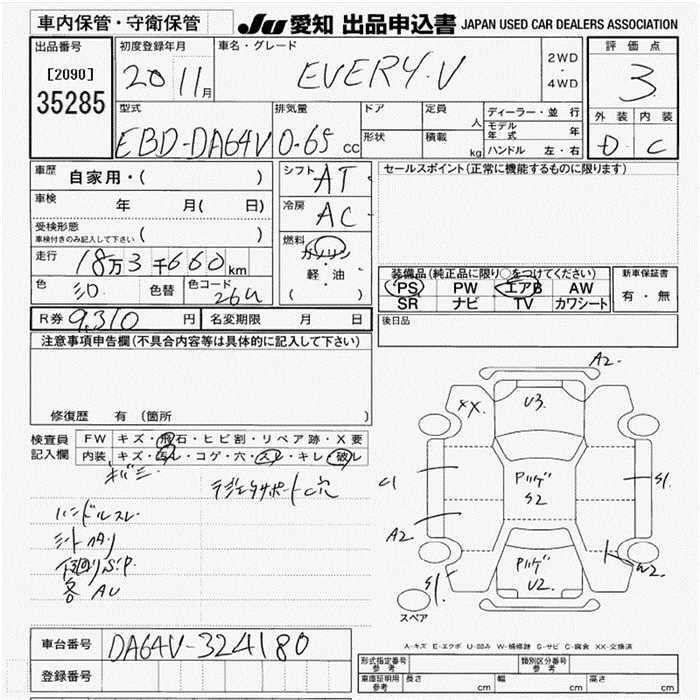 車内保管・守衛保管
JU 愛知 出品申込書 JAPAN USED CAR DEALERS ASSOCIATION
出品番号
[2090]
35285
初度登録年月
20 11月
車名・グレード
EVERY.V
2WD
・
4WD
評価点
3
外装 内装
D C
型式
EBD-DA64V
排気量
0.65 cc
ドア
形状
定員 人
積載 kg
ディーラー・並行
モデル年式 年
ハンドル 左・右
車歴 自家用・( )
車検 年 月( 日)
受検形態
車検付きのみ記入して下さい ( )
走行 18万3千660km
色 色替 色コード 26U
シフト AT
冷房 AC
燃料
ガソリン
軽・油
( )
セールスポイント(正常に機能するものに限ります)
装備品(純正品に限り○をつけてください)
PS PW エアB AW
SR ナビ TV カワシート
新車保証書
有・無
R券 9,310 円 名変期限 月 日
後日品
注意事項申告欄(不具合内容等は具体的に記入して下さい)
修復歴 有 (箇所 )
検査員
記入欄
FW キズ・飛石・ヒビ割・リペア跡・X要
内装 キズ・汚レ・コゲ・穴・スレ・キレ・破レ
ラジエタサポートC穴
ハンドルスレ
シートヘタリ
下回りS.P.
各 AU
A2.
XX.
U3.
C1
S1.
S2
A2.
W2.
S1.
U2.
スペア
A-キズ E-エクボ U-凹み W-補修跡 S-サビ C-腐食 XX-交換済
車台番号 DA64V-324180
登録番号
形式指定番号
参考
類別区分番号
参考
車庫証明用
参考
長さ cm 幅 cm 高さ cm